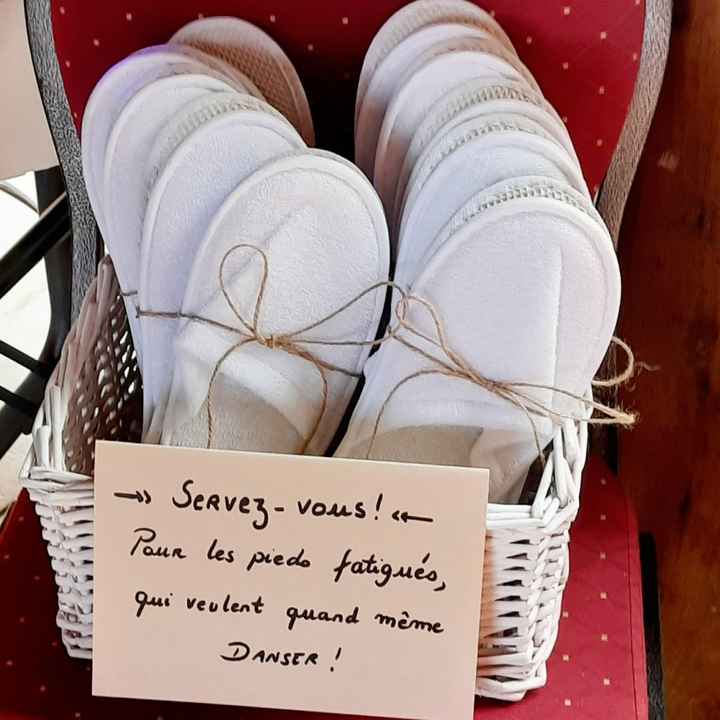 →» Servez-vous! «←
Pour les pieds fatigués,
qui veulent quand même
DANSER !